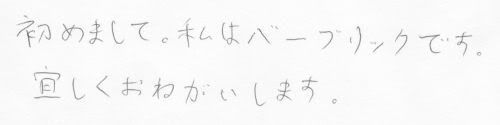 初めまして。私はバーブリックです。
宜しくおねがいします。